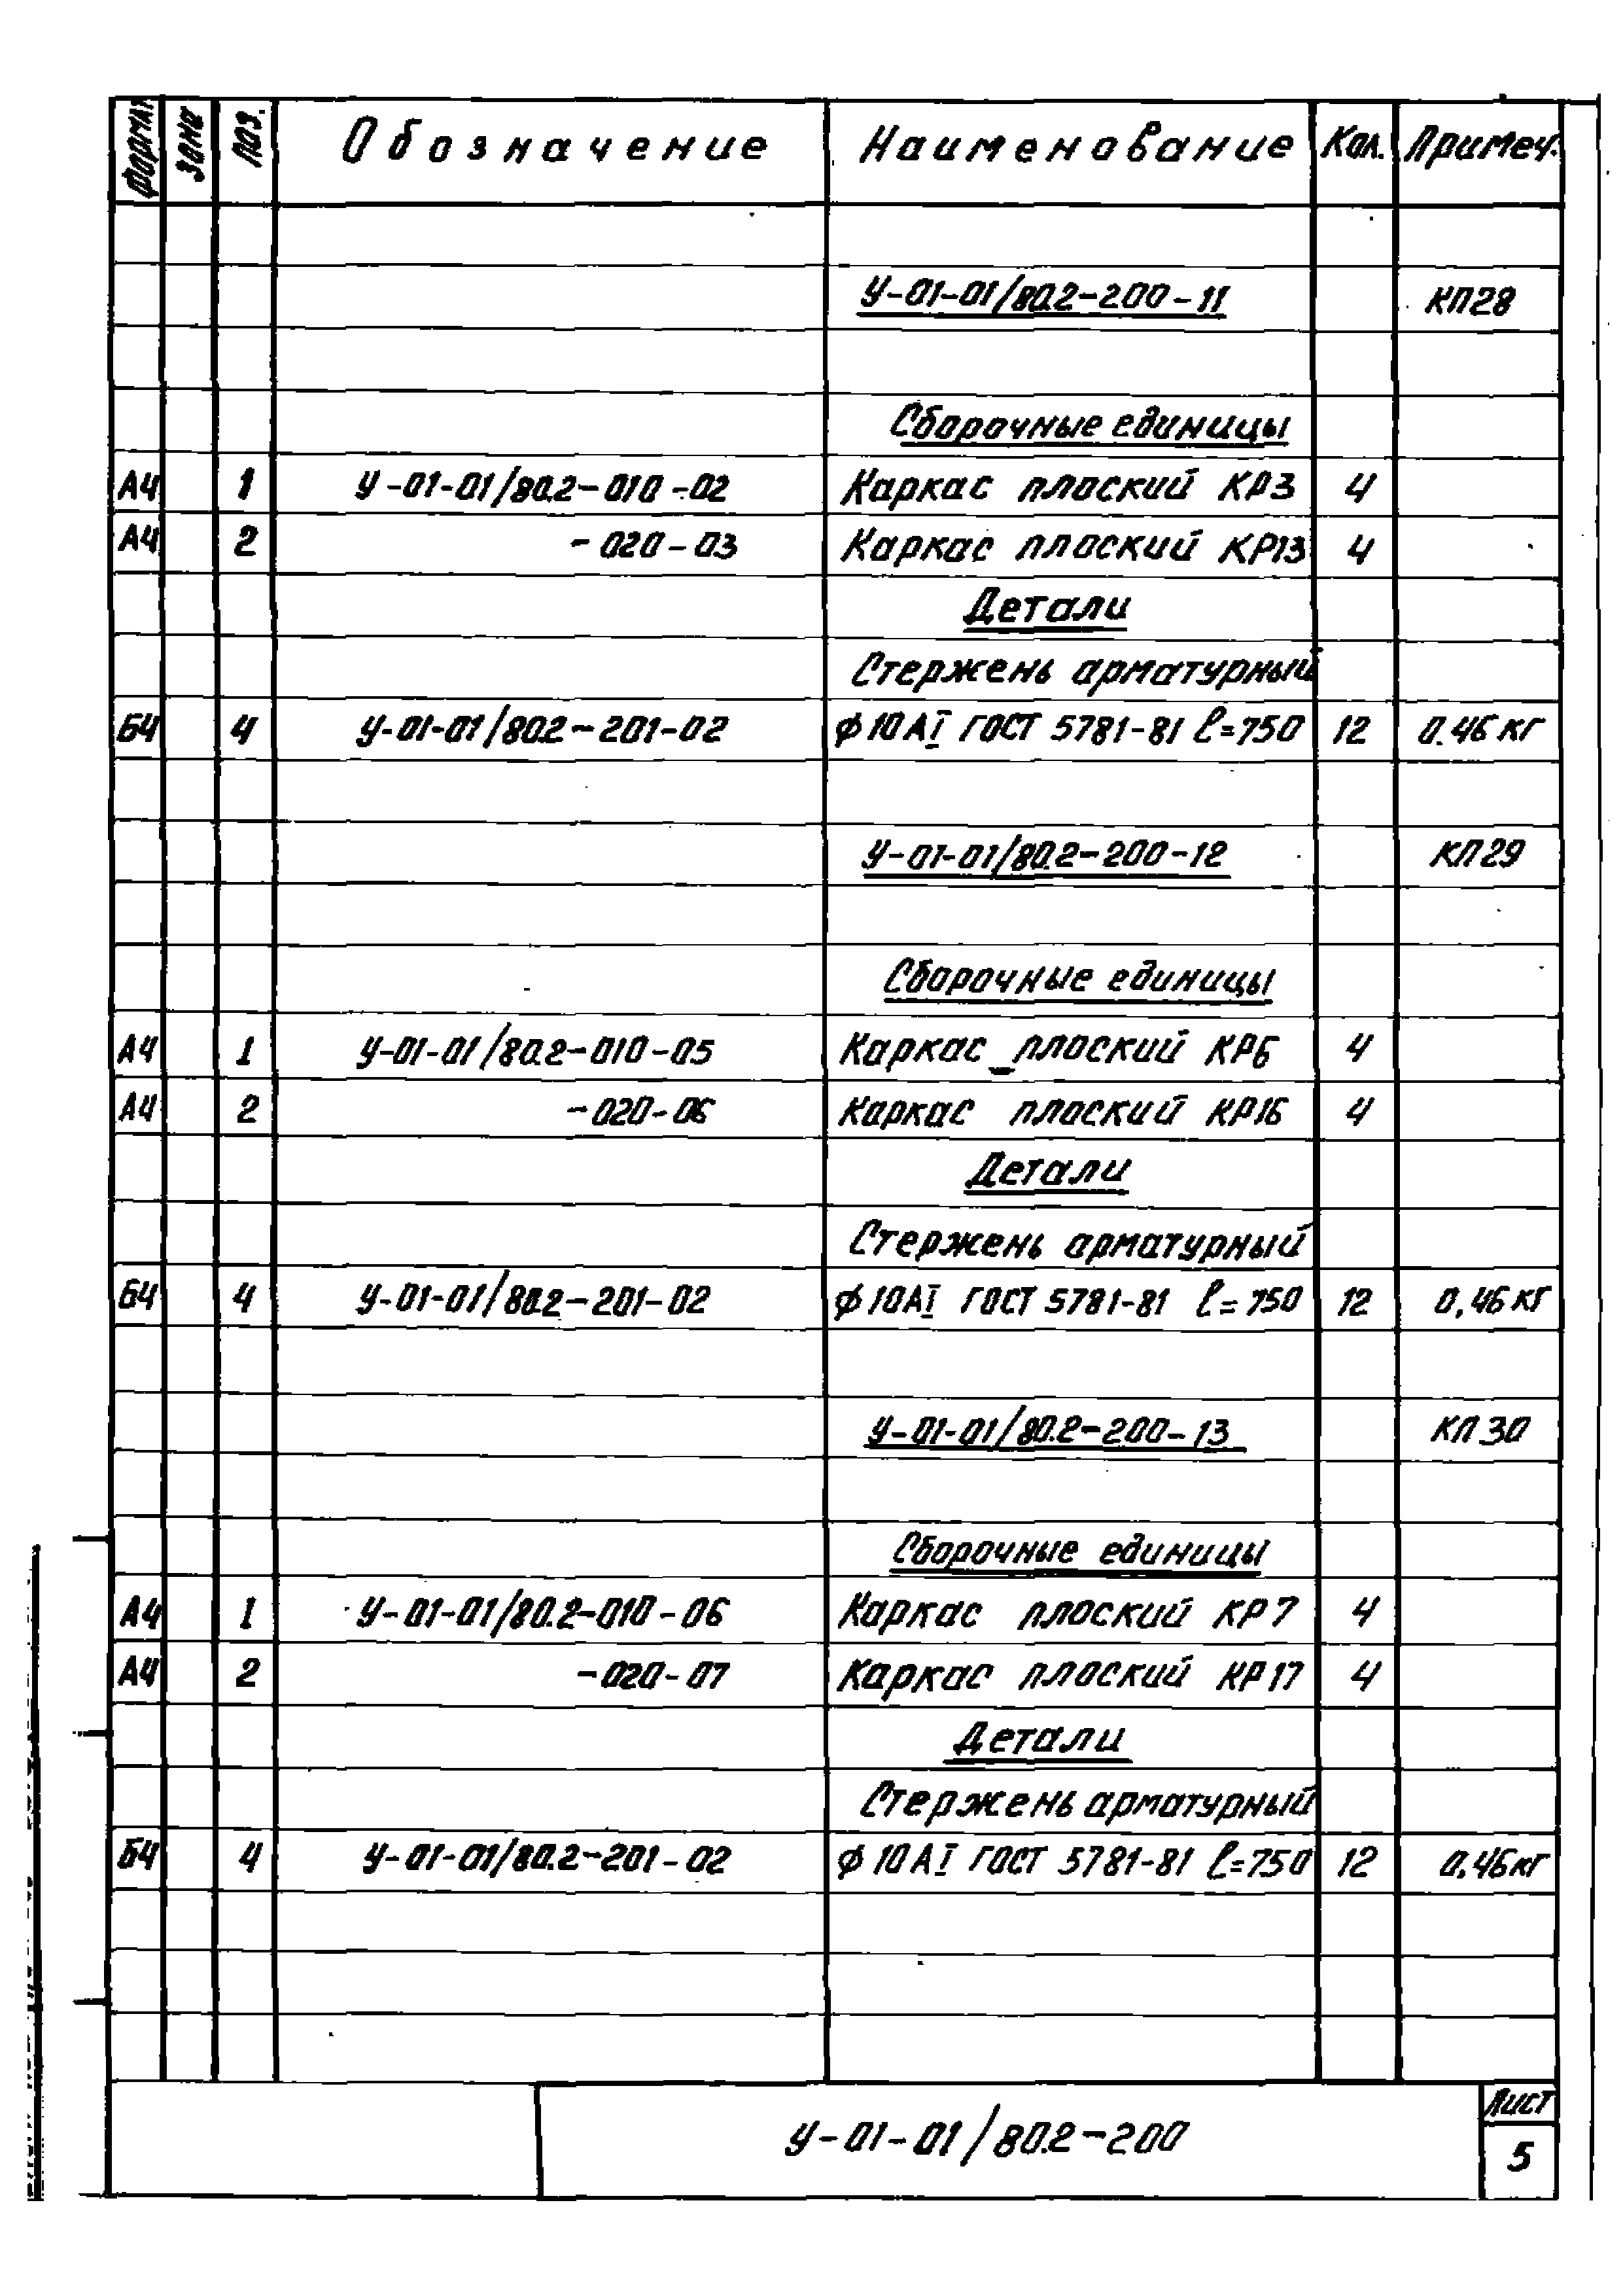 Формат Зона Поз. Обозначение Наименование Кол. Примеч.
У-01-01/80.2-200-11 КП28
Сборочные единицы
А4 1 У-01-01/80.2-010-02 Каркас плоский КР3 4
А4 2 -020-03 Каркас плоский КР13 4
Детали
Стержень арматурный
Б4 4 У-01-01/80.2-201-02 ф10АI ГОСТ 5781-81 l=750 12 0.46кг
У-01-01/80.2-200-12 КП29
Сборочные единицы
А4 1 У-01-01/80.2-010-05 Каркас плоский КР6 4
А4 2 -020-06 Каркас плоский КР16 4
Детали
Стержень арматурный
Б4 4 У-01-01/80.2-201-02 ф10АI ГОСТ 5781-81 l=750 12 0,46кг
У-01-01/80.2-200-13 КП30
Сборочные единицы
А4 1 У-01-01/80.2-010-06 Каркас плоский КР7 4
А4 2 -020-07 Каркас плоский КР17 4
Детали
Стержень арматурный
Б4 4 У-01-01/80.2-201-02 ф10АI ГОСТ 5781-81 l=750 12 0,46кг
У-01-01/80.2-200
Лист
5